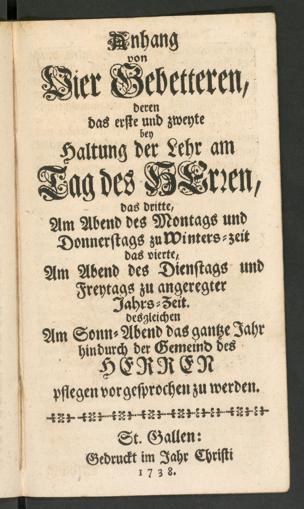 Anhang
von
Vier Gebetteren,
deren
das erste und zweyte
bey
Haltung der Lehr am
Tag des HErren,
das dritte,
Am Abend des Montags und
Donnerstags zu Winters-zeit
das vierte,
Am Abend des Dienstags und
Freytags zu angeregter
Jahrs-Zeit.
desgleichen
Am Sonn-Abend das gantze Jahr
hindurch der Gemeind des
HERREN
pflegen vorgesprochen zu werden.
St. Gallen:
Gedruckt im Jahr Christi
1738.